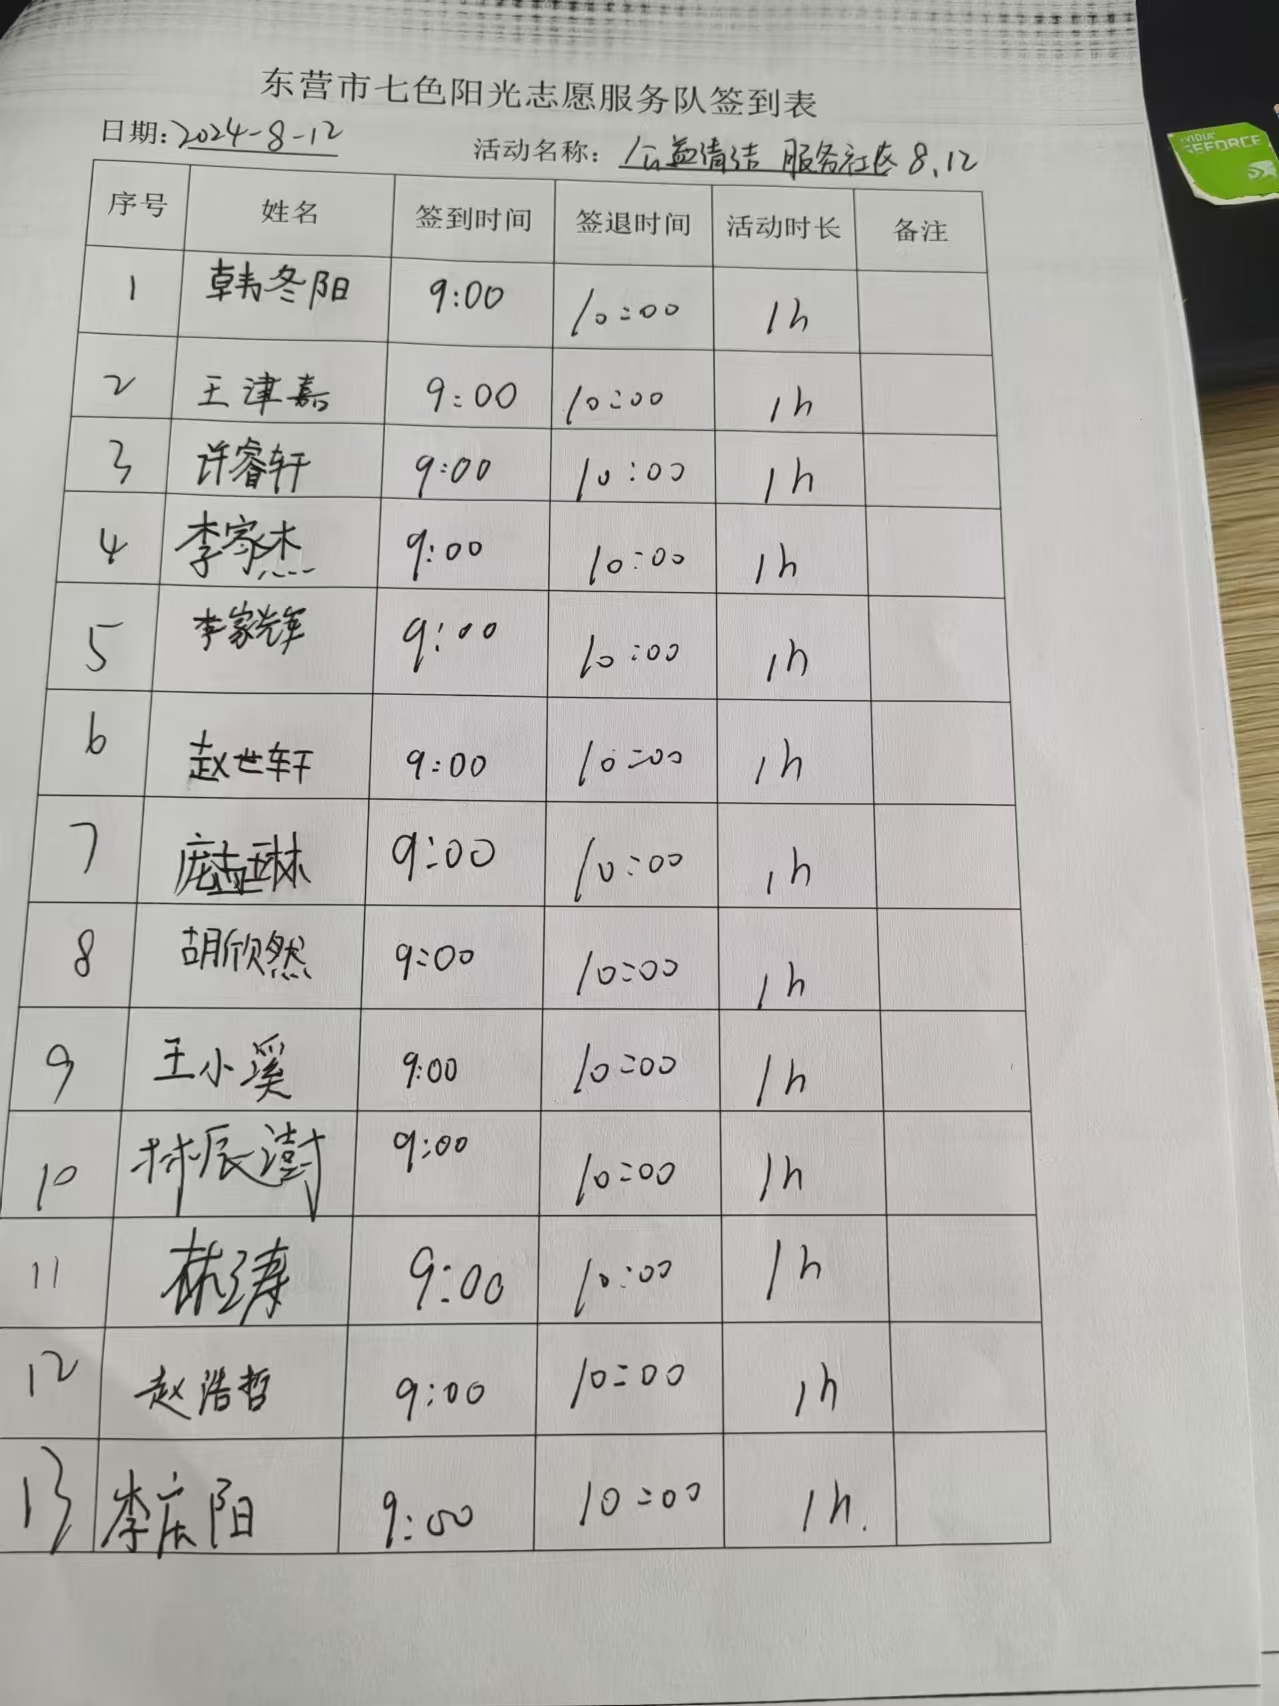 东营市七色阳光志愿服务队签到表
日期:2024-8-12 活动名称: 公益清洁 服务社区 8.12
序号 姓名 签到时间 签退时间 活动时长 备注
1 韩冬阳 9:00 10:00 1h
2 王津嘉 9:00 10:00 1h
3 许睿轩 9:00 10:00 1h
4 李家杰 9:00 10:00 1h
5 李家辉 9:00 10:00 1h
6 赵世轩 9:00 10:00 1h
7 9:00 10:00 1h
8 胡欣然 9:00 10:00 1h
9 王小溪 9:00 10:00 1h
10 林辰澍 9:00 10:00 1h
11 林涛 9:00 10:00 1h
12 赵浩哲 9:00 10:00 1h
13 李庆阳 9:00 10:00 1h.
NVIDIA
GEFORCE